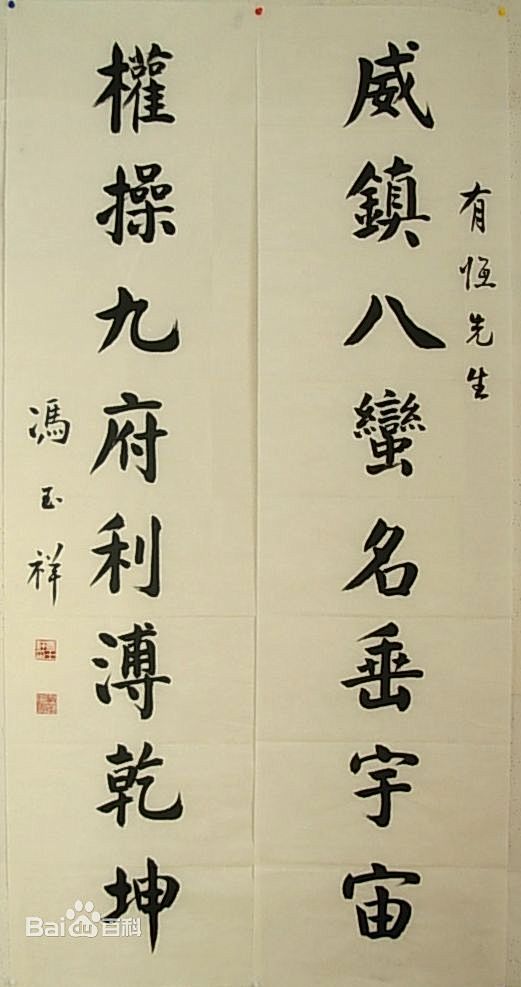 有恆先生
威鎮八蠻名垂宇宙
權操九府利溥乾坤
馮玉祥
Bai百科